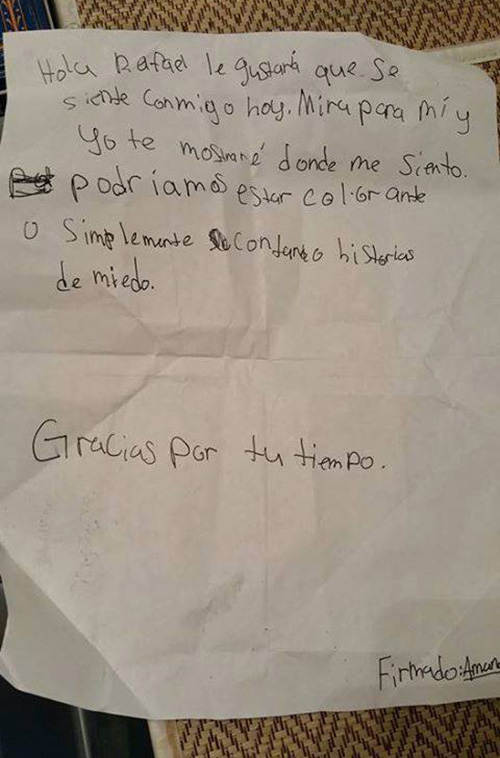 Hola Rafael le gustará que se
siente conmigo hoy. Mira para mí y
Yo te mostraré donde me siento.
podríamos estar col.or ante
o Simplemente contando historias
de miedo.
Gracias por tu tiempo.
Firmado: Aman